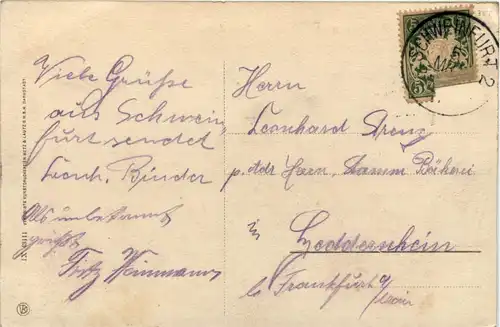 Viele Grüße
aus Schwein
furt sendet
Leonh. Binder
Als unbekannt
grüßt
Fritz
Herrn
Leonhard
p. Adr Herrn Bäckerei
in
Heddernheim
b/ Frankfurt a/
Main
SCHWEINFURT 2
5